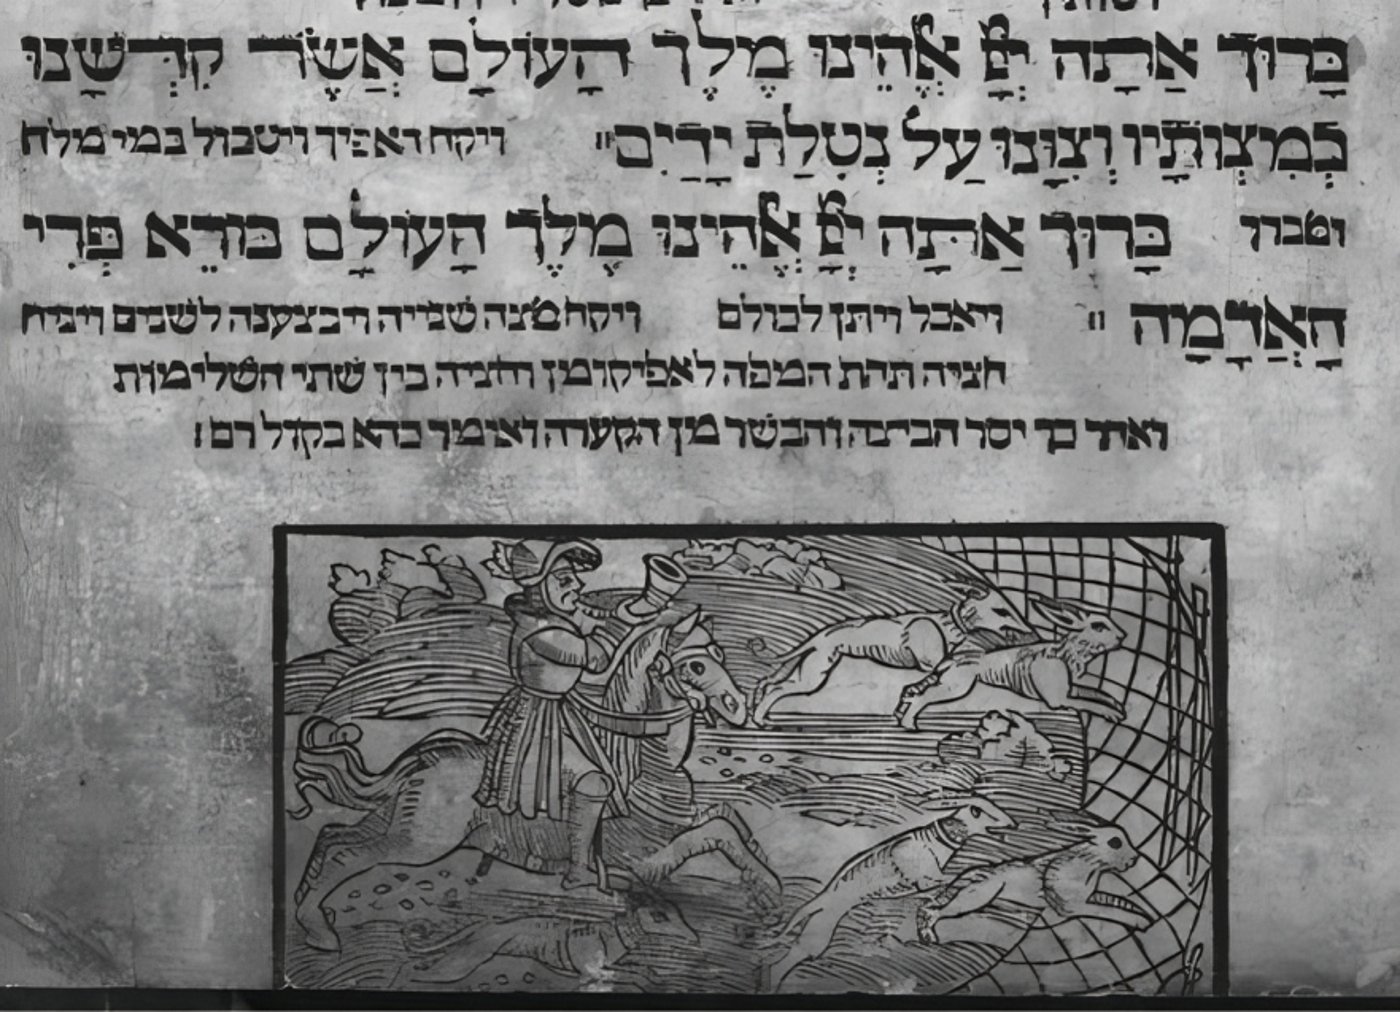 בָּרוּךְ אַתָּה יְיָ אֱלֹהֵינוּ מֶלֶךְ הָעוֹלָם אֲשֶׁר קִדְּשָׁנוּ
בְּמִצְוֹתָיו וְצִוָּנוּ עַל נְטִלַת יָדַיִם ״ ויקח ואפיך ויטבול במי מלח
ומברך בָּרוּךְ אַתָּה יְיָ אֱלֹהֵינוּ מֶלֶךְ הָעוֹלָם בּוֹרֵא פְּרִי
הָאֲדָמָה ״ ויאכל ויתן לכולם ויקח מצה שנייה ויבצענה לשנים ויניח
חציה תחת המפה לאפיקומן וחציה בין שתי השלימות
ואחר כך יסר הביצה והבשר מן הקערה ואומר כהא בקול רם: